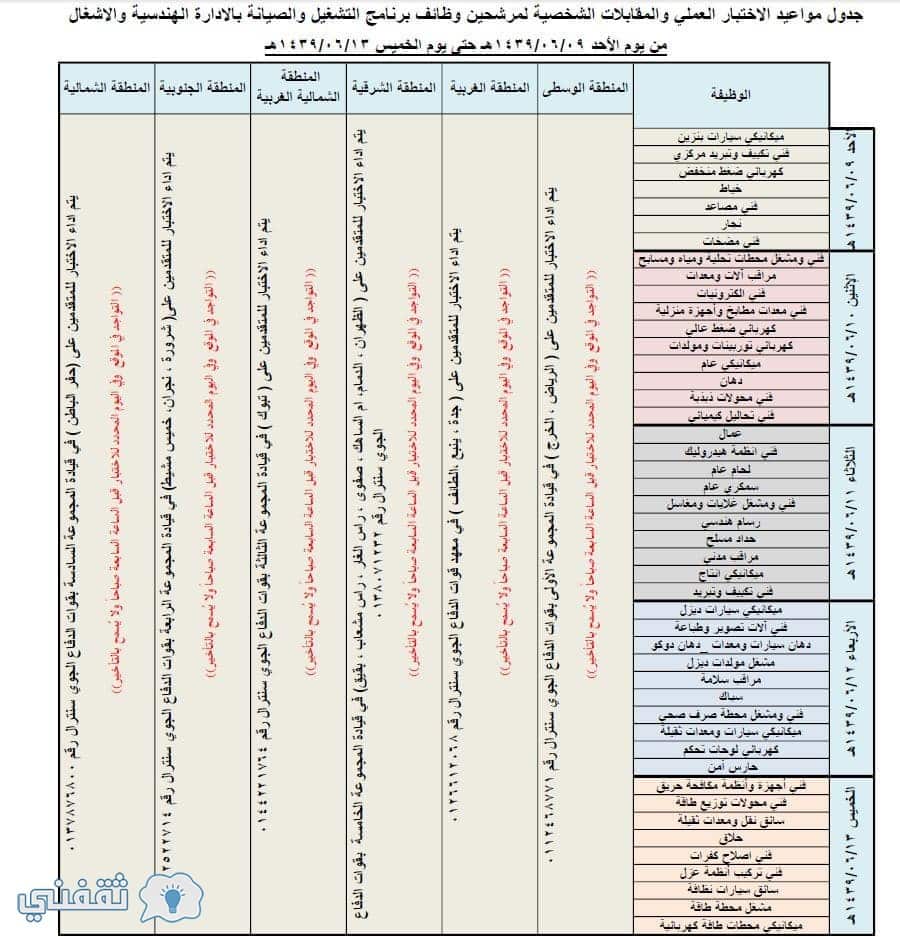 جدول مواعيد الاختبار العملي والمقابلات الشخصية لمرشحين وظائف برنامج التشغيل والصيانة بالادارة الهندسية والاشغال
من يوم الأحد ١٤٣٩/٠٦/٠٩هـ حتى يوم الخميس ١٤٣٩/٠٦/١٣هـ
الوظيفة
المنطقة الوسطى
المنطقة الغربية
المنطقة الشرقية
المنطقة
الشمالية الغربية
المنطقة الجنوبية
المنطقة الشمالية
الأحد ١٤٣٩/٠٦/٠٩هـ
ميكانيكي سيارات بنزين
فني تكييف وتبريد مركزي
كهربائي ضغط منخفض
خياط
فني مصاعد
نجار
فني مضخات
الإثنين ١٤٣٩/٠٦/١٠هـ
فني ومشغل محطات تحلية ومياه ومسابح
مراقب آلات ومعدات
فني الكترونيات
فني معدات مطابخ وأجهزة منزلية
كهربائي ضغط عالي
كهربائي توربينات ومولدات
ميكانيكي عام
دهان
فني محولات ذبذبة
فني تحاليل كيميائي
الثلاثاء ١٤٣٩/٠٦/١١هـ
عمال
فني انظمة هيدروليك
لحام عام
سمكري عام
فني ومشغل غلايات ومغاسل
رسام هندسي
حداد مسلح
مراقب مدني
ميكانيكي انتاج
فني تكييف وتبريد
الأربعاء ١٤٣٩/٠٦/١٢هـ
ميكانيكي سيارات ديزل
فني آلات تصوير وطباعة
دهان سيارات ومعدات _دهان دوكو
مشغل مولدات ديزل
مراقب سلامة
سباك
فني ومشغل محطة صرف صحي
ميكانيكي سيارات ومعدات ثقيلة
كهربائي لوحات تحكم
حارس أمن
الخميس ١٤٣٩/٠٦/١٣هـ
فني أجهزة وأنظمة مكافحة حريق
فني محولات توزيع طاقة
سائق نقل ومعدات ثقيلة
حلاق
فني اصلاح كفرات
فني تركيب أنظمة عزل
سائق سيارات نظافة
مشغل محطة طاقة
ميكانيكي محطات طاقة كهربائية
يتم اداء الاختبار للمتقدمين على ( الرياض ، الخرج ) في قيادة المجموعة الأولى بقوات الدفاع الجوي سنترال رقم ٠١١٢٤٦٨٧٧١
(( التواجد في الموقع وفي اليوم المحدد للاختبار قبل الساعة السابعة صباحاً ولا يُسمح بالتأخير))
يتم اداء الاختبار للمتقدمين على ( جدة ، ينبع ،الطائف ) في معهد قوات الدفاع الجوي سنترال رقم ٠١٢٦٦١٢٠٦٨
(( التواجد في الموقع وفي اليوم المحدد للاختبار قبل الساعة السابعة صباحاً ولا يُسمح بالتأخير))
يتم اداء الاختبار للمتقدمين على ( الظهران ، الدمام، ام الساهك ، صفوى ، راس الغار ، راس مشعاب ، بقيق) في قيادة المجموعة الخامسة بقوات الدفاع
الجوي سنترال رقم ٠١٣٨٠٧١٢٣٢
(( التواجد في الموقع وفي اليوم المحدد للاختبار قبل الساعة السابعة صباحاً ولا يُسمح بالتأخير))
يتم اداء الاختبار للمتقدمين على ( تبوك ) في قيادة المجموعة الثالثة بقوات الدفاع الجوي سنترال رقم ٠١٤٤٢٢١٧٦٤
(( التواجد في الموقع وفي اليوم المحدد للاختبار قبل الساعة السابعة صباحاً ولا يُسمح بالتأخير))
يتم اداء الاختبار للمتقدمين على( شرورة ، نجران، خميس مشيط) في قيادة المجموعة الرابعة بقوات الدفاع الجوي سنترال رقم
(( التواجد في الموقع وفي اليوم المحدد للاختبار قبل الساعة السابعة صباحاً ولا يُسمح بالتأخير))
يتم اداء الاختبار للمتقدمين على (حفر الباطن ) في قيادة المجموعة السادسة بقوات الدفاع الجوي سنترال رقم ٠١٣٧٨٧٦٨٠٠
(( التواجد في الموقع وفي اليوم المحدد للاختبار قبل الساعة السابعة صباحاً ولا يُسمح بالتأخير))
ثقفني